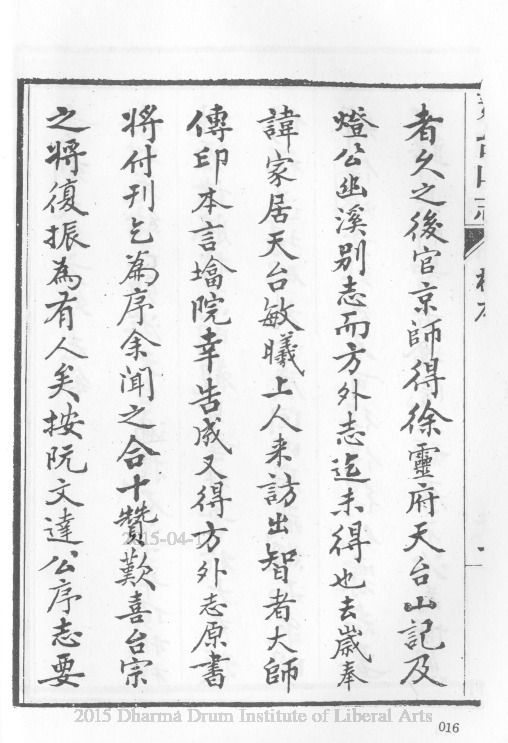 者久之後官京師得徐靈府天台山記及
燈公幽溪別志而方外志迄未得也去歲奉
諱家居天台敏曦上人来訪出智者大師
傳印本言墖院幸告成又得方外志原書
將付刊乞為序余聞之合十贊歎喜台宗
之將復振為有人矣按阮文達公序志要
2015-04-1
2015 Dharma Drum Institute of Liberal Arts
016